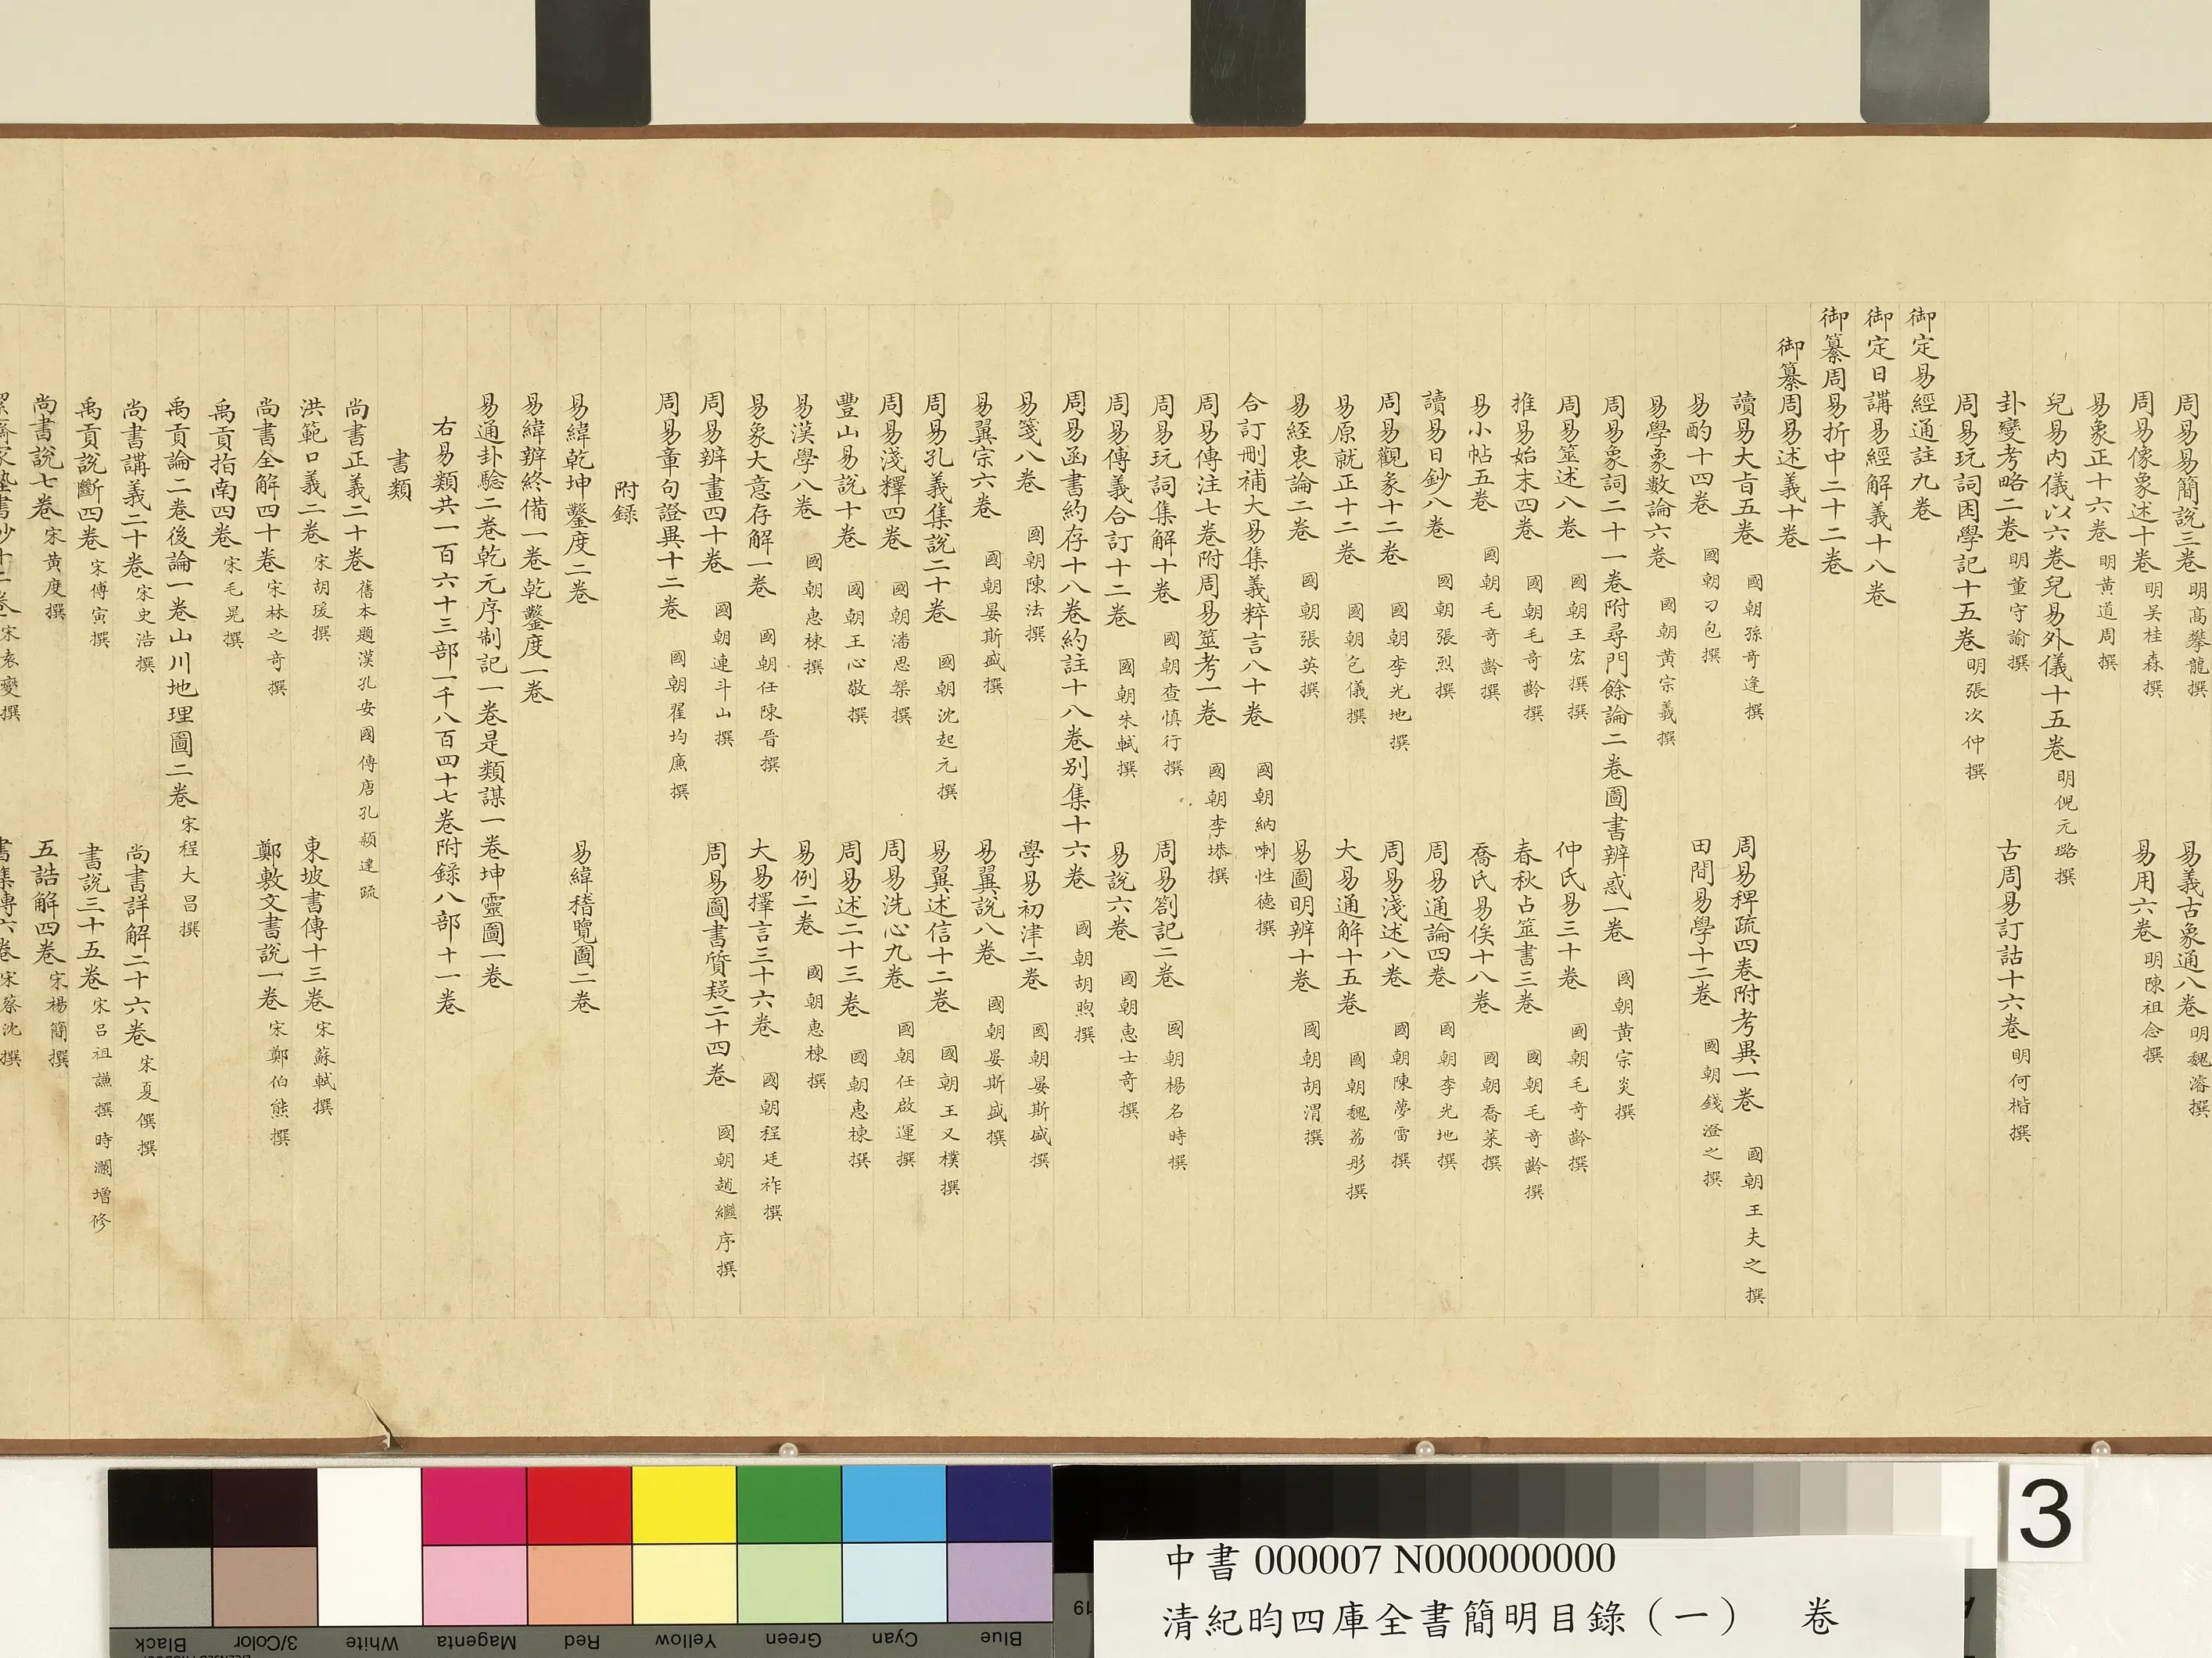 周易易簡說三卷 明高攀龍撰 易義古象通八卷 明魏濬撰
周易像象述十卷 明吴桂森撰 易用六卷 明陳祖念撰
易象正十六卷 明黄道周撰
兒易内儀以六卷兒易外儀十五卷 明倪元璐撰
卦變考略二卷 明董守諭撰 古周易訂詁十六卷 明何楷撰
周易玩詞困學記十五卷 明張次仲撰
御定易經通註九卷
御定日講易經解義十八卷
御纂周易折中二十二卷
御纂周易述義十卷
讀易大旨五卷 國朝孫奇逢撰 周易稗疏四卷附考異一卷 國朝王夫之撰
易酌十四卷 國朝刁包撰 田間易學十二卷 國朝錢澄之撰
易學象數論六卷 國朝黄宗羲撰
周易象詞二十一卷附尋門餘論二卷圖書辨惑一卷 國朝黄宗炎撰
周易筮述八卷 國朝王宏撰撰 仲氏易三十卷 國朝毛奇齡撰
推易始末四卷 國朝毛奇齡撰 春秋占筮書三卷 國朝毛奇齡撰
易小帖五卷 國朝毛奇齡撰 喬氏易俟十八卷 國朝喬萊撰
讀易日鈔八卷 國朝張烈撰 周易通論四卷 國朝李光地撰
周易觀彖十二卷 國朝李光地撰 周易淺述八卷 國朝陳夢雷撰
易原就正十二卷 國朝包儀撰 大易通解十五卷 國朝魏荔彤撰
易經衷論二卷 國朝張英撰 易圖明辨十卷 國朝胡渭撰
合訂刪補大易集義粹言八十卷 國朝納喇性德撰
周易傳注七卷附周易筮考一卷 國朝李塨撰
周易玩詞集解十卷 國朝查慎行撰 周易劄記二卷 國朝楊名時撰
周易傳義合訂十二卷 國朝朱軾撰 易說六卷 國朝惠士奇撰
周易函書約存十八卷約註十八卷别集十六卷 國朝胡煦撰
易箋八卷 國朝陳法撰 學易初津二卷 國朝晏斯盛撰
易翼宗六卷 國朝晏斯盛撰 易翼說八卷 國朝晏斯盛撰
周易孔義集說二十卷 國朝沈起元撰 易翼述信十二卷 國朝王又樸撰
周易淺釋四卷 國朝潘思榘撰 周易洗心九卷 國朝任啟運撰
豐山易說十卷 國朝王心敬撰 周易述二十三卷 國朝惠棟撰
易漢學八卷 國朝惠棟撰 易例二卷 國朝惠棟撰
易象大意存解一卷 國朝任陳晉撰 大易擇言三十六卷 國朝程廷祚撰
周易辨畫四十卷 國朝連斗山撰 周易圖書質疑二十四卷 國朝趙繼序撰
周易章句證異十二卷 國朝翟均廉撰
附録
易緯乾坤鑿度二卷 易緯稽覽圖二卷
易緯辨終備一卷乾鑿度二卷
易通卦驗二卷乾元序制記一卷是類謀一卷坤靈圖一卷
右易類共一百六十三部一千八百四十七卷附錄八部十一卷
書類
尚書正義二十卷 舊本題漢孔安國傳唐孔穎達疏
洪範口義二卷 宋胡瑗撰 東坡書傳十三卷 宋蘇軾撰
尚書全解四十卷 宋林之奇撰 鄭敷文書說一卷 宋鄭伯熊撰
禹貢指南四卷 宋毛晃撰
禹貢論二卷後論一卷山川地理圖二卷 宋程大昌撰
尚書講義二十卷 宋史浩撰 尚書詳解二十六卷 宋夏僎撰
禹貢說斷四卷 宋傅寅撰 書說三十五卷 宋呂祖謙撰 時瀾增修
尚書說七卷 宋黄度撰 五誥解四卷 宋楊簡撰
絜齋家塾書抄十二卷 宋袁燮撰 書集傳六卷 宋蔡沈撰
Black
3/Color
White
Magenta
Red
Yellow
Green
Cyan
Blue
19
3
中書 000007 N000000000
清紀昀四庫全書簡明目錄（一） 卷